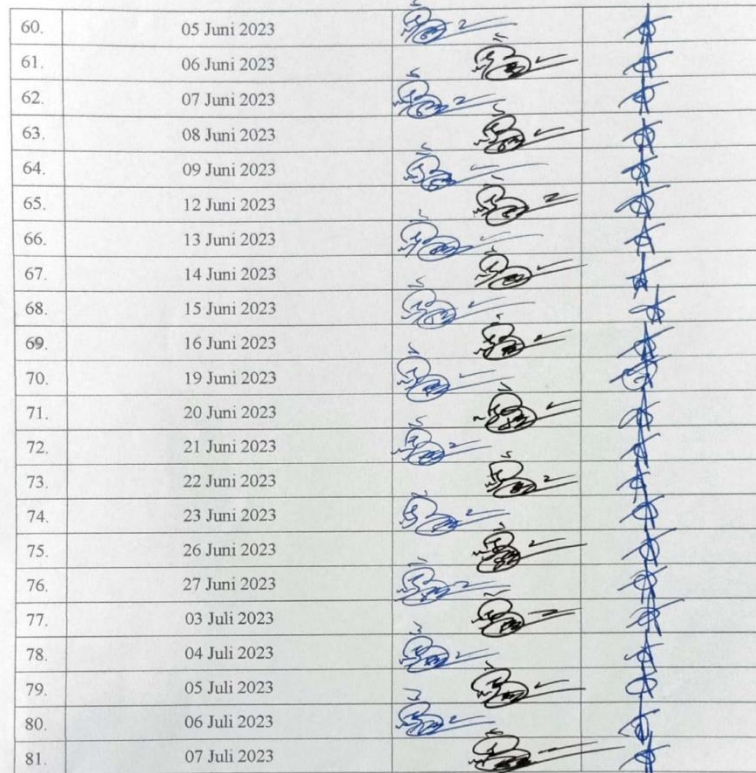 60. 05 Juni 2023
61. 06 Juni 2023
62. 07 Juni 2023
63. 08 Juni 2023
64. 09 Juni 2023
65. 12 Juni 2023
66. 13 Juni 2023
67. 14 Juni 2023
68. 15 Juni 2023
69. 16 Juni 2023
70. 19 Juni 2023
71. 20 Juni 2023
72. 21 Juni 2023
73. 22 Juni 2023
74. 23 Juni 2023
75. 26 Juni 2023
76. 27 Juni 2023
77. 03 Juli 2023
78. 04 Juli 2023
79. 05 Juli 2023
80. 06 Juli 2023
81. 07 Juli 2023